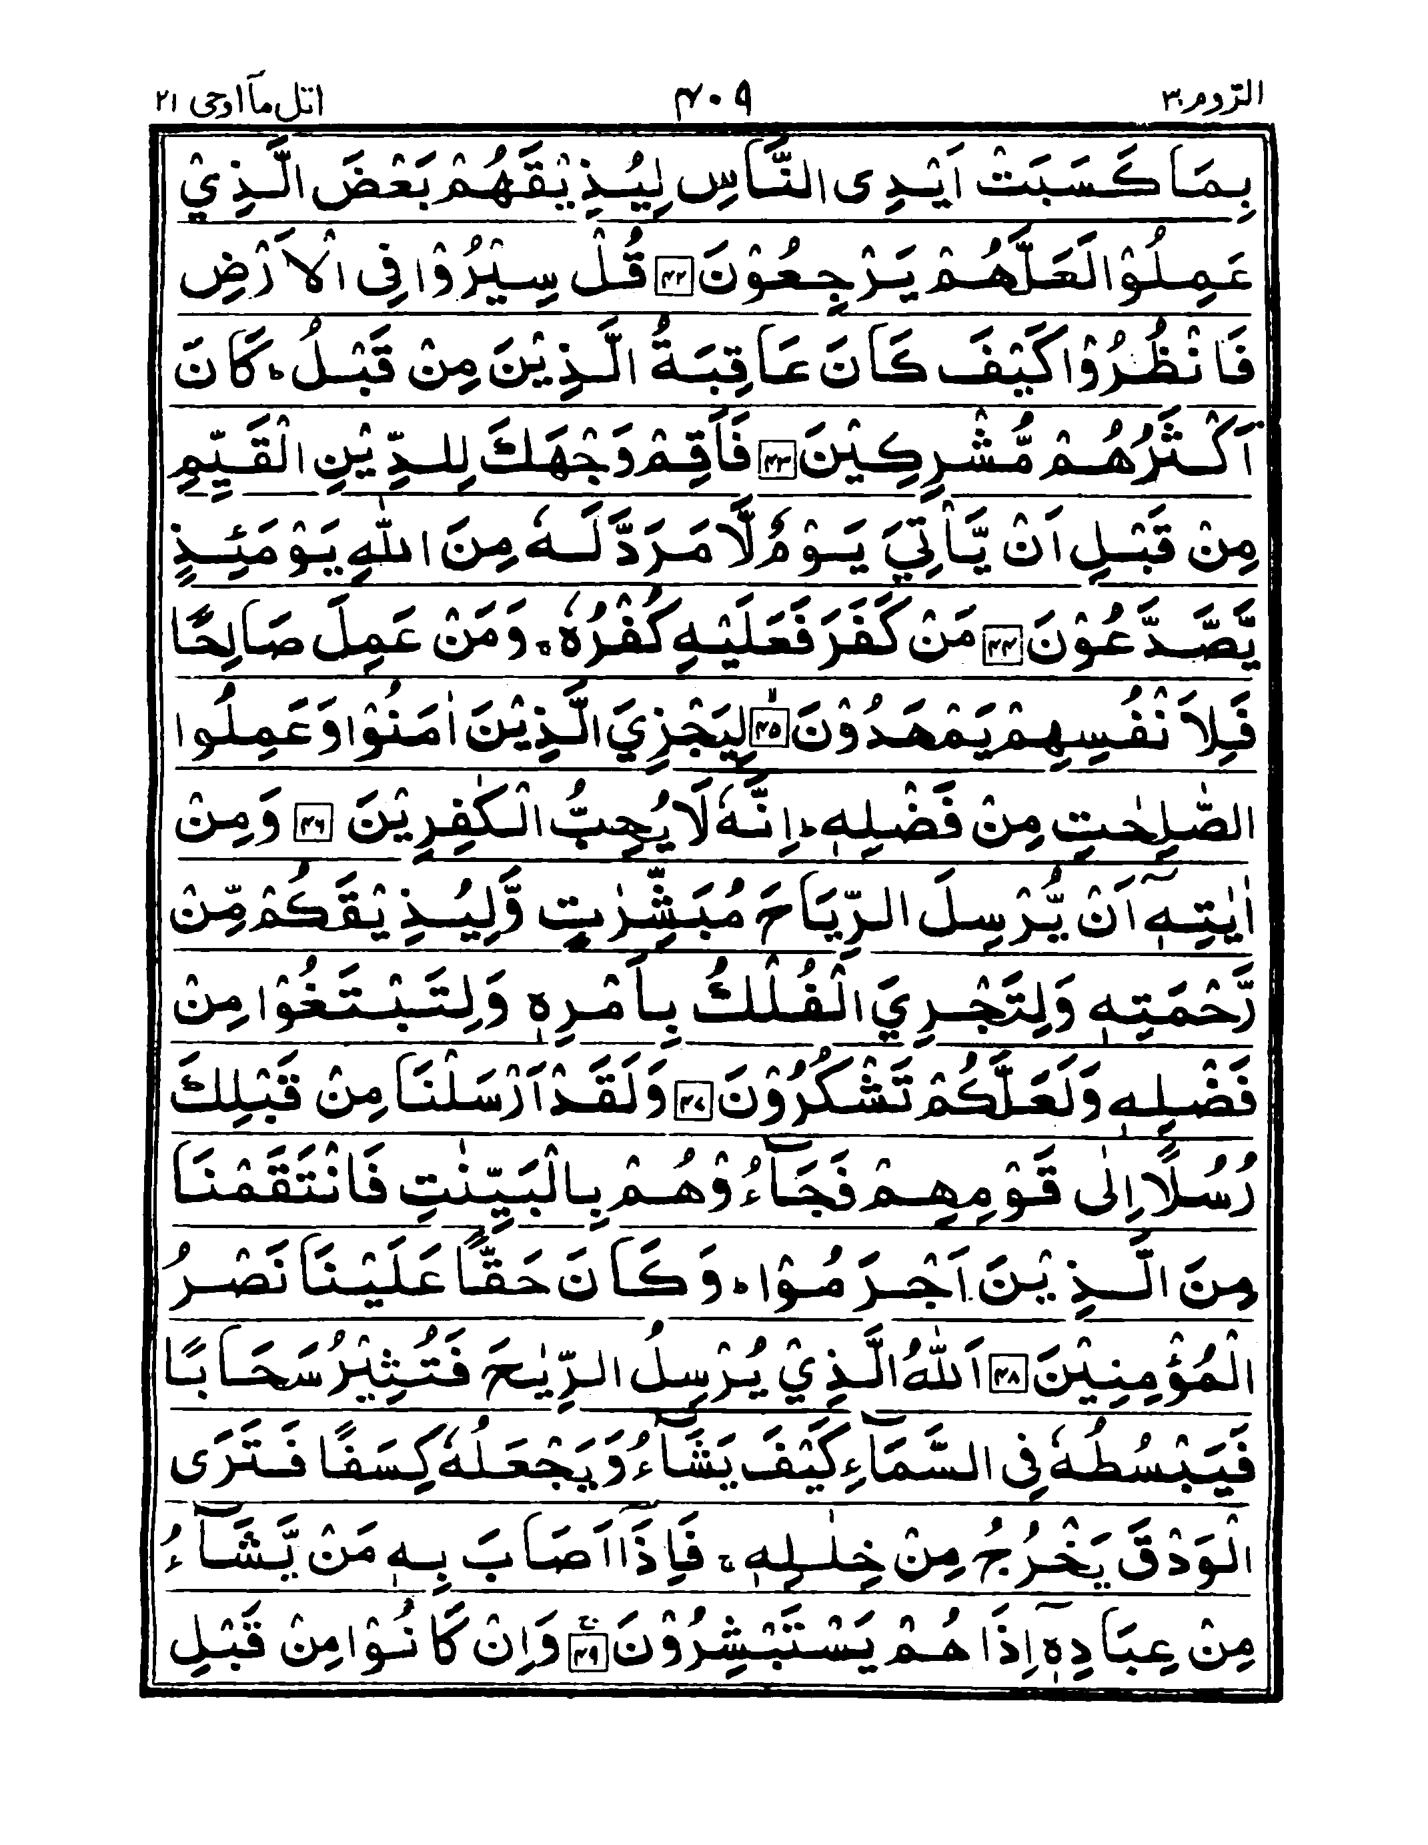 الرّوم ٣٠ ۴۰۹ اتل مآ اوحی ۲۱
بِمَا كَسَبَتْ اَيْدِى النَّاسِ لِيُذِيْقَهُمْ بَعْضَ الَّذِيْ
عَمِلُوْا لَعَلَّهُمْ يَرْجِعُوْنَ ۴۲ قُلْ سِيْرُوْا فِى الْاَرْضِ
فَانْظُرُوْا كَيْفَ كَانَ عَاقِبَةُ الَّذِيْنَ مِنْ قَبْلُ ؕ كَانَ
اَكْثَرُهُمْ مُّشْرِكِيْنَ ۴۳ فَاَقِمْ وَجْهَكَ لِلدِّيْنِ الْقَيِّمِ
مِنْ قَبْلِ اَنْ يَّاْتِيَ يَوْمٌ لَّا مَرَدَّ لَهٗ مِنَ اللّٰهِ يَوْمَئِذٍ
يَّصَّدَّعُوْنَ ۴۴ مَنْ كَفَرَ فَعَلَيْهِ كُفْرُهٗ ۚ وَمَنْ عَمِلَ صَالِحًا
فَلِاَنْفُسِهِمْ يَمْهَدُوْنَ ۴۵ۙ لِيَجْزِيَ الَّذِيْنَ اٰمَنُوْا وَعَمِلُوا
الصّٰلِحٰتِ مِنْ فَضْلِهٖ ؕ اِنَّهٗ لَا يُحِبُّ الْكٰفِرِيْنَ ۴۶ وَمِنْ
اٰيٰتِهٖٓ اَنْ يُّرْسِلَ الرِّيَاحَ مُبَشِّرٰتٍ وَّلِيُذِيْقَكُمْ مِّنْ
رَّحْمَتِهٖ وَلِتَجْرِيَ الْفُلْكُ بِاَمْرِهٖ وَلِتَبْتَغُوْا مِنْ
فَضْلِهٖ وَلَعَلَّكُمْ تَشْكُرُوْنَ ۴۷ وَلَقَدْ اَرْسَلْنَا مِنْ قَبْلِكَ
رُسُلًا اِلٰى قَوْمِهِمْ فَجَآءُوْهُمْ بِالْبَيِّنٰتِ فَانْتَقَمْنَا
مِنَ الَّذِيْنَ اَجْرَمُوْا ؕ وَكَانَ حَقًّا عَلَيْنَا نَصْرُ
الْمُؤْمِنِيْنَ ۴۸ اَللّٰهُ الَّذِيْ يُرْسِلُ الرِّيٰحَ فَتُثِيْرُ سَحَابًا
فَيَبْسُطُهٗ فِى السَّمَآءِ كَيْفَ يَشَآءُ وَيَجْعَلُهٗ كِسَفًا فَتَرَى
الْوَدْقَ يَخْرُجُ مِنْ خِلٰلِهٖ ۚ فَاِذَآ اَصَابَ بِهٖ مَنْ يَّشَآءُ
مِنْ عِبَادِهٖٓ اِذَا هُمْ يَسْتَبْشِرُوْنَ ۴۹ۚ وَاِنْ كَانُوْا مِنْ قَبْلِ